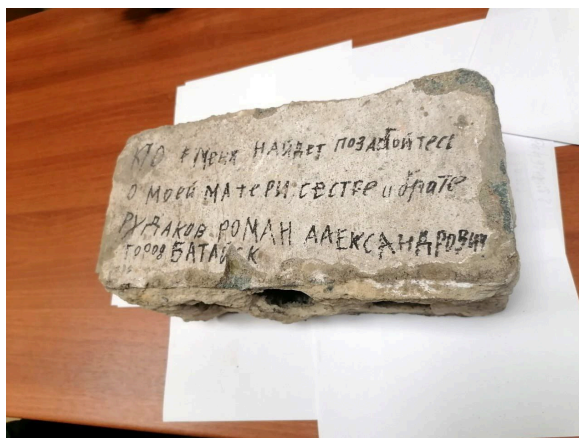 КТО меня НАЙдет ПОЗАБОЙТЕСЬ
о моей МАТЕРИ СЕСТРЕ и брате
РУДАКОВ РОМАН АЛЕКСАНДРОВИЧ
город БАТАЙСК